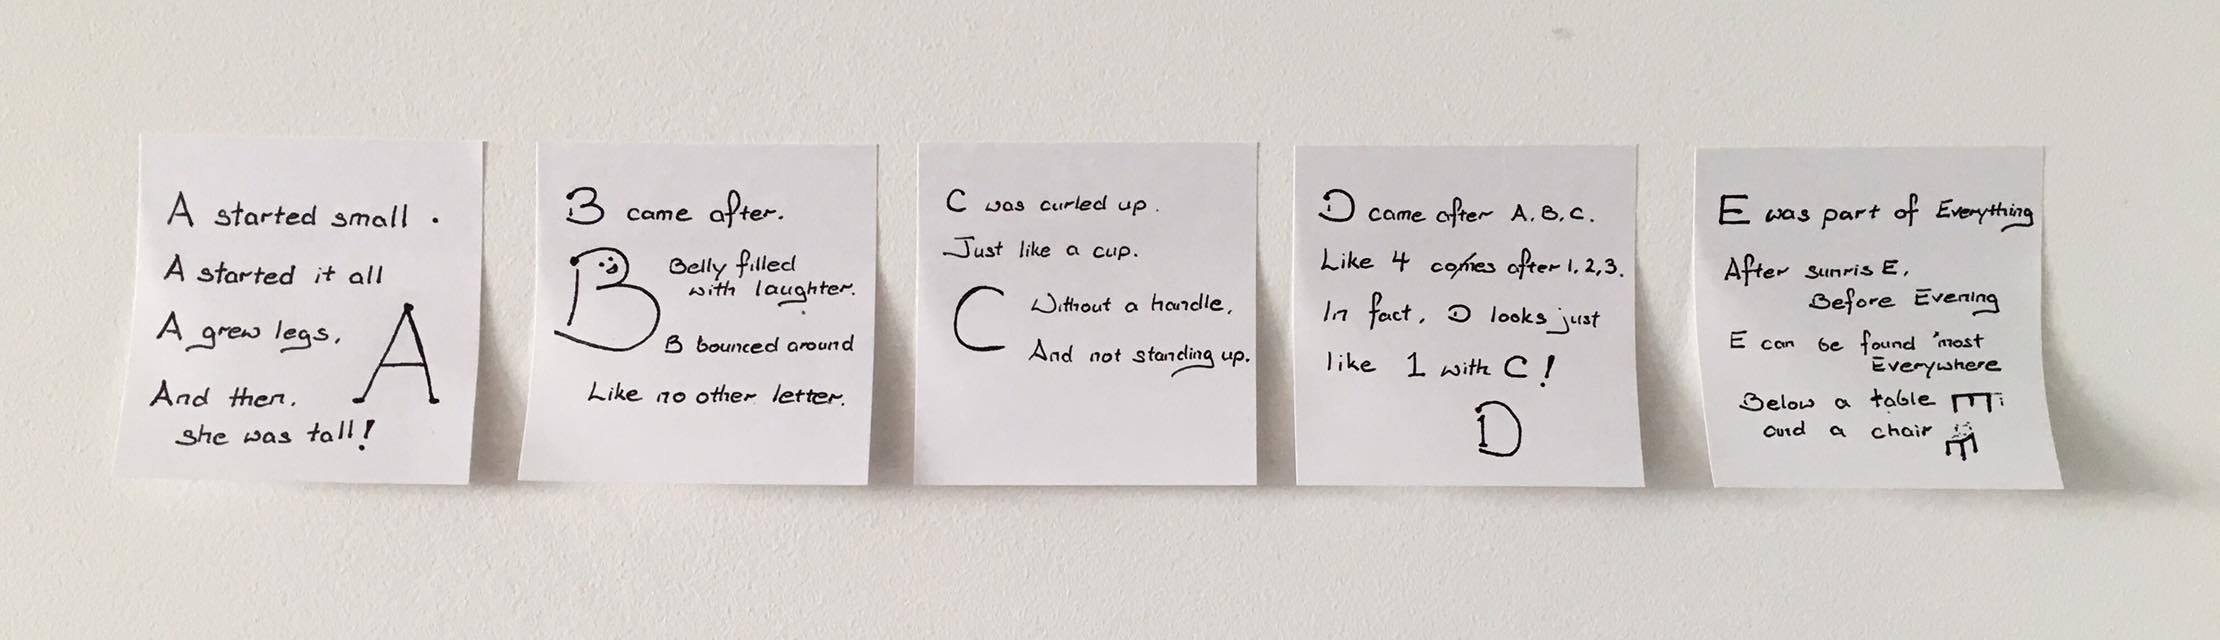 A started small.
A started it all
A grew legs.
A
And then.
she was tall!
B came after.
B
Belly filled
with laughter.
B bounced around
Like no other letter.
C was curled up.
Just like a cup.
C
Without a handle,
And not standing up.
D came after A, B, C.
Like 4 comes after 1, 2, 3.
In fact, D looks just
like 1 with C!
D
E was part of Everything
After sunrisE,
Before Evening
E can be found 'most
Everywhere
Below a table
and a chair